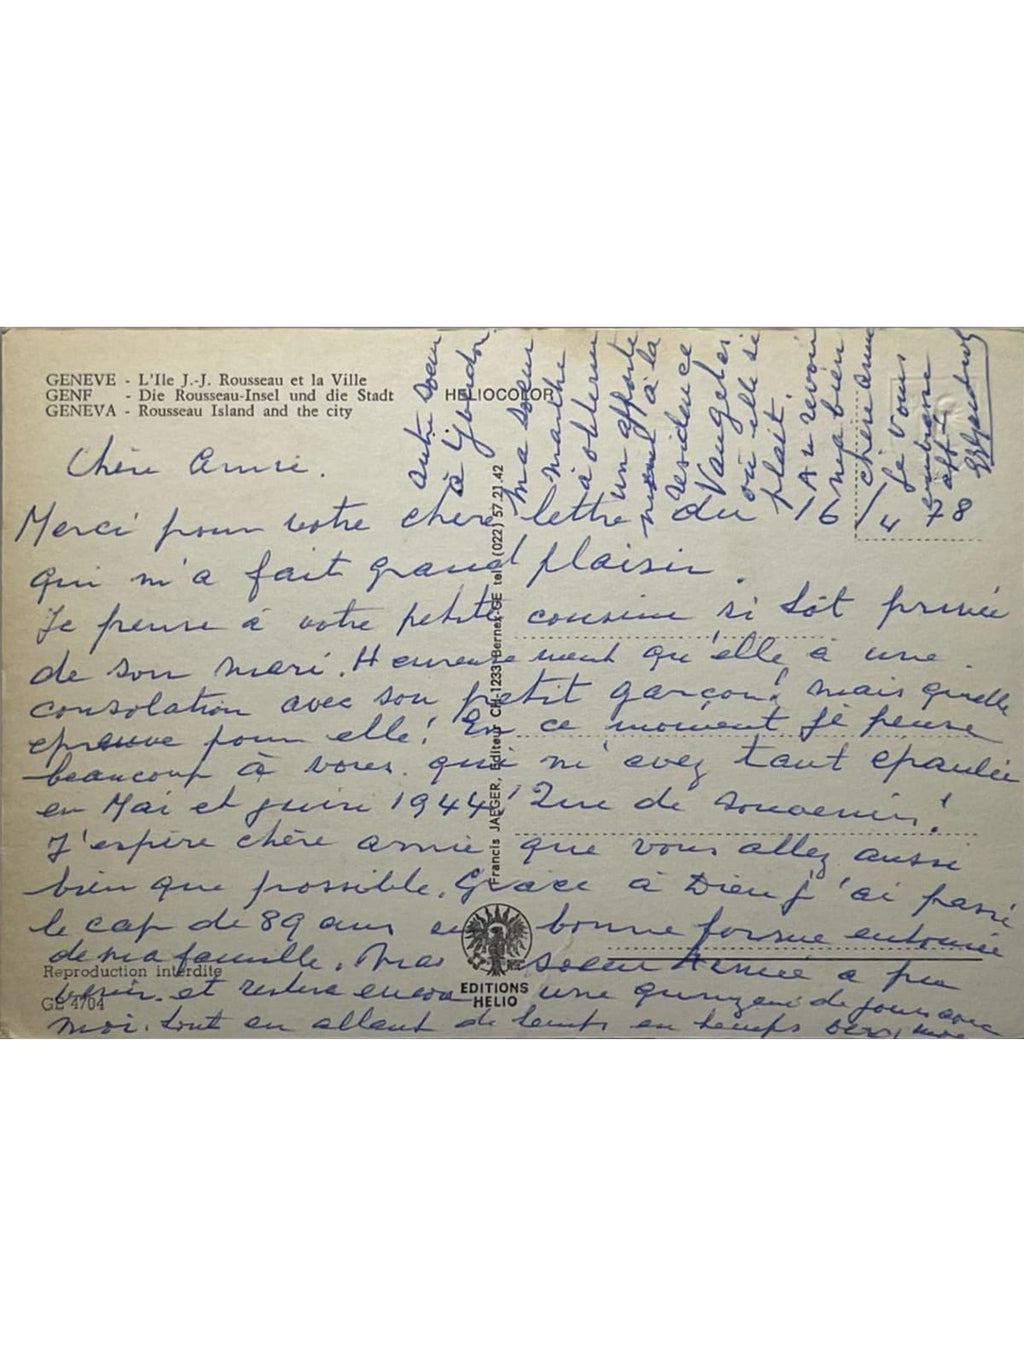 GENEVE - L'Ile J.-J. Rousseau et la Ville
GENF - Die Rousseau-Insel und die Stadt
GENEVA - Rousseau Island and the city
HELIOCOLOR
Chère Amie.
Merci pour votre chère lettre du 16/4 78
qui m'a fait grand plaisir.
Je pense à votre petite cousine si tôt privée
de son mari. Heureusement qu'elle a une
consolation avec son petit garçon! mais quelle
epreuve pour elle! En ce moment je pense
beaucoup à vous qui m'avez tant epaulée
en Mai et juin 1944! Que de souvenirs!
J'espère chère amie que vous allez aussi
bien que possible. Grâce à Dieu j'ai passé
le cap de 89 ans en bonne forme entourée
de ma famille. Ma soeur Aimée a pu
venir et restera encore une quinzaine de jours avec
moi. tout en allant de temps en temps vers
autre soeur
à Yverdon
ma soeur
Marthe
à obtenu
un apparte
ment à la
residence
Vaugelas
où elle se
plait.
Au revoir
ma bien
chère amie
Je vous
embrasse
affte
Francis JAEGER, Editeur CH-1233 Bernex-GE tel. (022) 57.21.42
Reproduction interdite
GE 4704
EDITIONS
HELIO